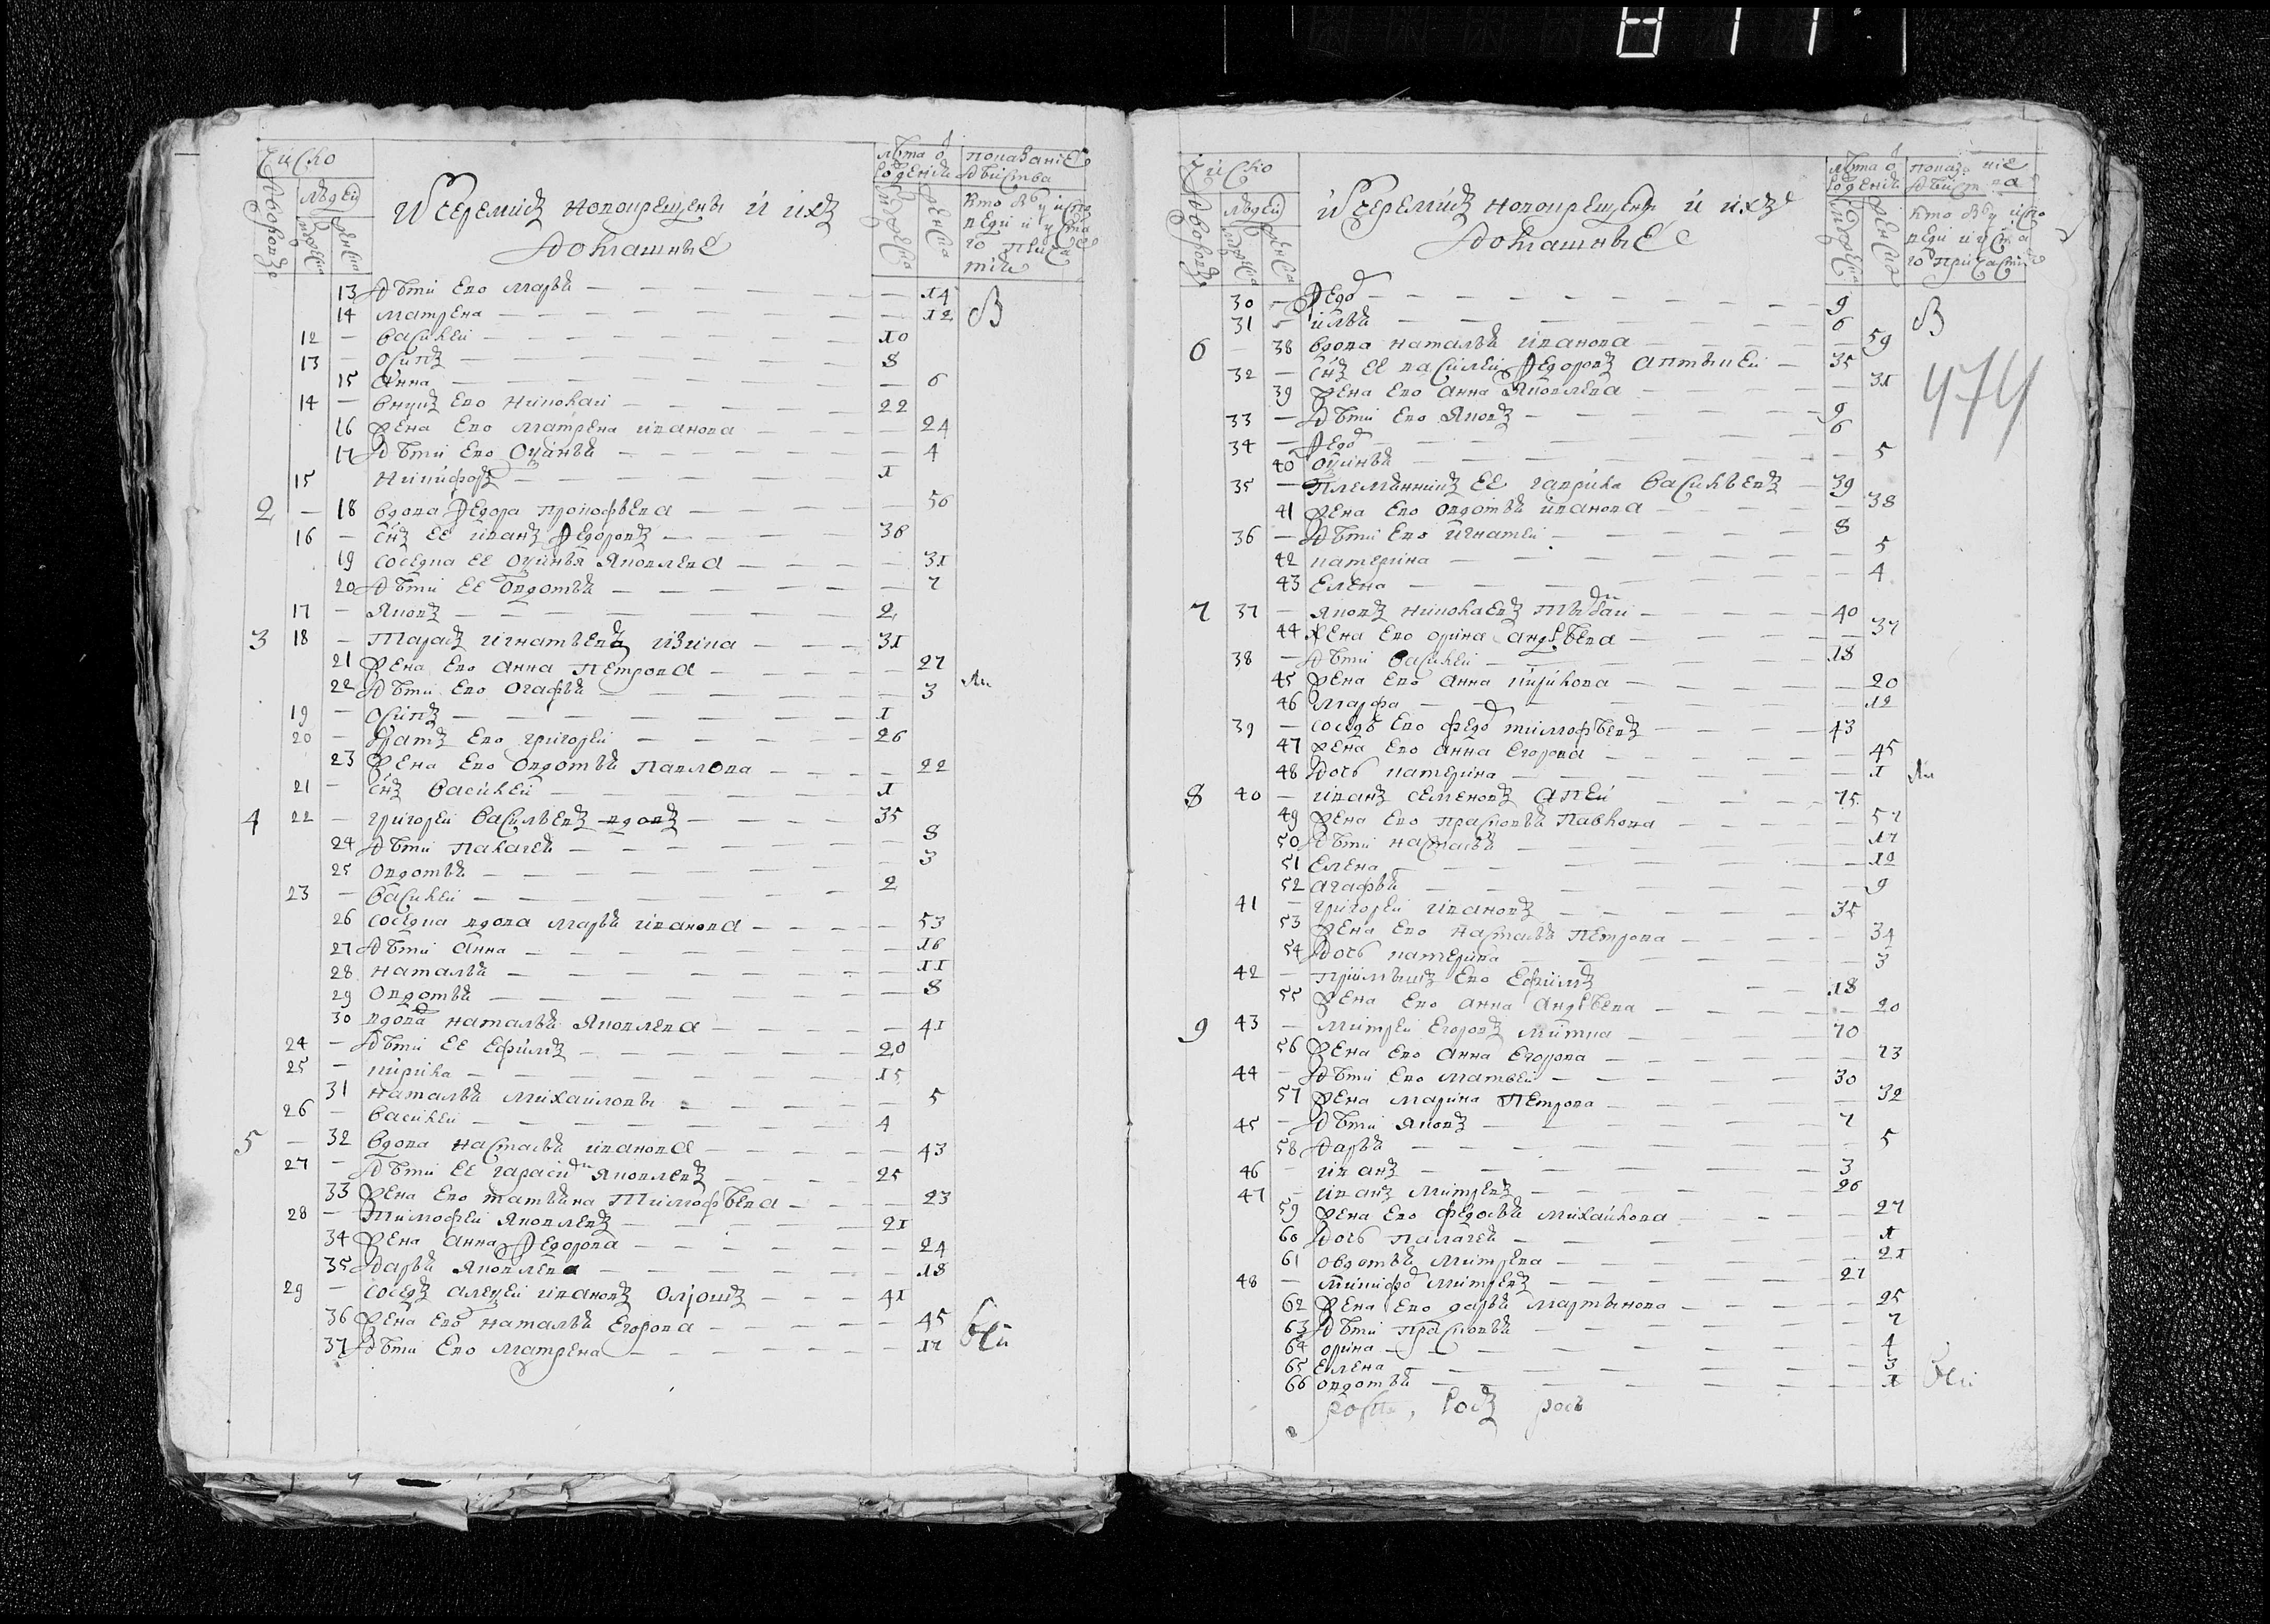 число
дворовъ
людей
мужеска
женска
Ис черемисъ новокрещены и ихъ
домашные
лѣта о рожденiи
мужеска
женска
показанiе дѣйства
кто былъ у исповѣди и у святаго причастiя
13 Дѣти ево марья — 14
14 матрена — 12 В
12 василей — 10
13 осипъ — 8
15 анна — 6
14 внукъ ево николай — 22
16 жена ево матрена иванова — 24
17 дѣти ево окинья — 4
15 никифоръ — 1
2 18 вдова федора прокофьева — 56
16 снъ ее иванъ федоровъ — 36
19 соседка ее окинья яковлева — 31
20 дѣти ее овдотья — 7
17 яковъ — 2
3 18 тарасъ игнатьевъ изика — 31
21 жена ево анна петрова — 27
22 дѣти ево огафья — 3
19 осипъ — 1
20 братъ ево григорей — 26
23 жена ево овдотья павлова — 22
21 снъ василей — 1
4 22 григорей васильевъ вдовъ — 35
24 дѣти палагея — 8
25 овдотья — 3
23 василей — 2
26 соседка вдова марья иванова — 53
27 дѣти анна — 16
28 наталья — 11
29 овдотья — 8
30 вдова наталья яковлева — 41
24 дѣти ее ефимъ — 20
25 кирила — 15
31 наталья михайловы — 5
26 василей — 4
5 32 вдова настасья иванова — 43
27 дѣти ее гарасим яковлевъ — 25
33 жена ево татьяна тимофѣева — 23
28 тимофей яковлевъ — 21
34 жена анна федорова — 24
35 дарья яковлева — 18
29 соседъ алексей ивановъ — 41
36 жена ево наталья егорова — 45
37 дѣти ево матрена — 17
число
дворовъ
людей
мужеска
женска
Ис черемисъ новокрещены и ихъ
домашные
лѣта о рожденiи
мужеска
женска
показанiе дѣйства
кто былъ у исповѣди и у святаго причастiя
30 федор — 9
31 илья — 6 В
6 38 вдова наталья иванова — 59
474
32 снъ ее василей федоровъ — 35
39 жена ево анна яковлева — 31
33 дѣти ево яковъ — 9
34 федор — 6
40 окинья — 5
35 племянникъ ее гаврила васильевъ — 39
41 жена ево овдотья иванова — 38
36 дѣти ево игнатей — 8
42 катерина — 5
43 елена — 4
7 37 яковъ николаевъ — 40
44 жена ево орина андрѣева — 37
38 дѣти василей — 18
45 жена ево анна кирилова — 20
46 марфа — 12
39 соседъ ево федор тимофѣевъ — 43
47 жена ево анна егорова — 45
48 дочь катерина — 1
8 40 иванъ семеновъ апей — 75
49 жена ево прасковья павлова — 57
50 дѣти настасья — 17
51 елена — 10
52 агафья — 9
41 григорей ивановъ — 35
53 жена ево настасья петрова — 34
54 дочь катерина — 3
42 приимышъ ево ефимъ — 18
55 жена ево анна андрѣева — 20
9 43 митрей егоровъ митка — 70
56 жена ево анна егорова — 73
44 дѣти ево матвей — 30
57 жена марина петрова — 32
45 дѣти яковъ — 7
58 дарья — 5
46 иванъ — 3
47 иванъ митревъ — 26
59 жена ево федосья михайлова — 27
60 дочь палагея — 1
61 овдотья митрева — 21
48 никифор митревъ — 21
62 жена ево дарья мартынова — 25
63 дѣти прасковья — 7
64 орина — 4
65 елена — 3
66 овдотья — 1